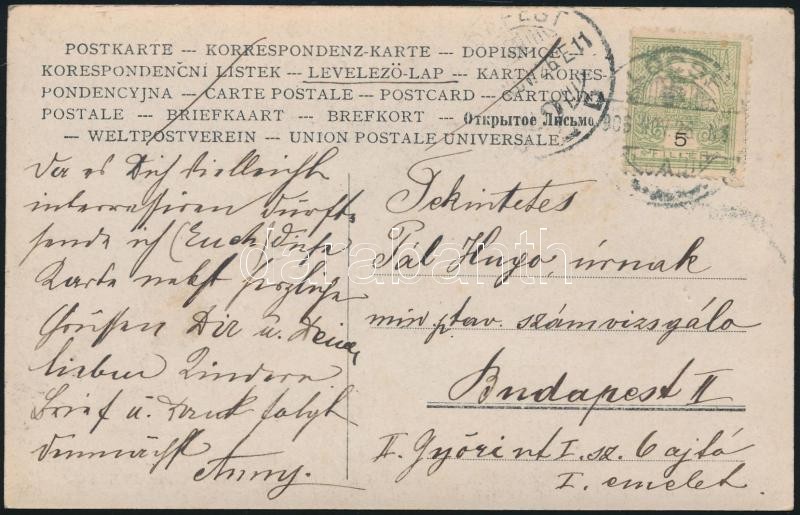 POSTKARTE -- KORRESPONDENZ-KARTE -- DOPISNICE
KORESPONDENČNÍ LISTEK -- LEVELEZŐ-LAP -- KARTA KORES-
PONDENCYJNA -- CARTE POSTALE -- POSTCARD -- CARTOLINA
POSTALE -- BRIEFKAART -- BREFKORT -- Открытое Письмо.
-- WELTPOSTVEREIN -- UNION POSTALE UNIVERSALE.
5
FILLÉR
Da es Dich vielleicht
interressiren dürft-
sende ich (Euch) diese
Karte nebst herzliche
Grüssen Dir u. Deinen
lieben Kindern
Brief u. Dank folgt
demnächst
Anny.
Tekintetes
Pál Hugo, úrnak
min ptav. számvizsgáló
Budapest II
II. Győri út 1. sz. 6 ajtó
I. emelet.
darabanth